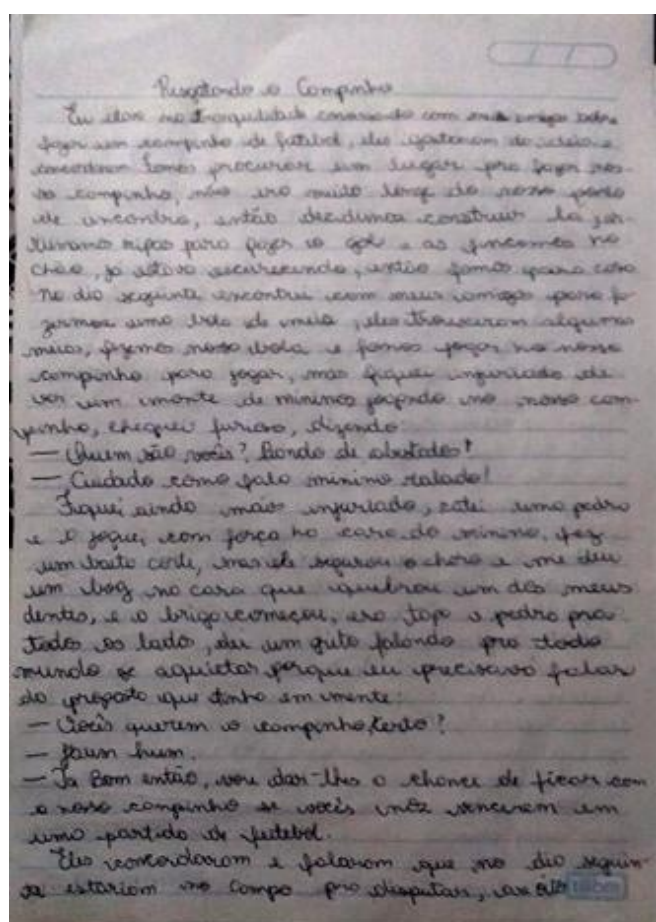 Resgatando o Campinho
Eu estava na tranquilidade conversando com meus amigos sobre
fazer um campinho de futebol, eles gostaram da ideia e
concordaram fomos procurar um lugar pra fazer nos-
so campinho, não era muito longe do nosso ponto
de encontro, então decidimos construir la,
ripas para fazer o gol e as fincamos no
chão, ja estava escurecendo, então fomos para casa
No dia seguinte encontrei com meus amigos para fa-
zermos uma bola de meia, eles trouxeram algumas
meias, fizemos nossa bola e fomos jogar no nosso
campinho para jogar, mas fiquei injuriado de
ver um monte de mininos jogando no nosso cam-
pinho, cheguei furioso, dizendo:
— Quem são vocês? Bando de abestados!
— Cuidado como fala minino ralado!
Fiquei ainda mais injuriado, catei uma pedra
e a joguei com força na cara do minino, fez
um baita corte, mas ele segurou o choro e me deu
um na cara que quebrou um dos meus
dentes, e a briga começou, era tapa e pedra pra
todos os lado, dei um grito falando pra todo
mundo se aquietar porque eu precisava falar
da proposta que tinha em mente:
— Vocês querem o campinho, certo?
— hum.
— Ta Bom então, vou dar-lhes a chance de ficar com
o nosso campinho se vocês nóz vencerem em
uma partida de futebol.
Eles concordaram e falaram que no dia seguin-
te estariam no Campo pra disputar,
tilibra